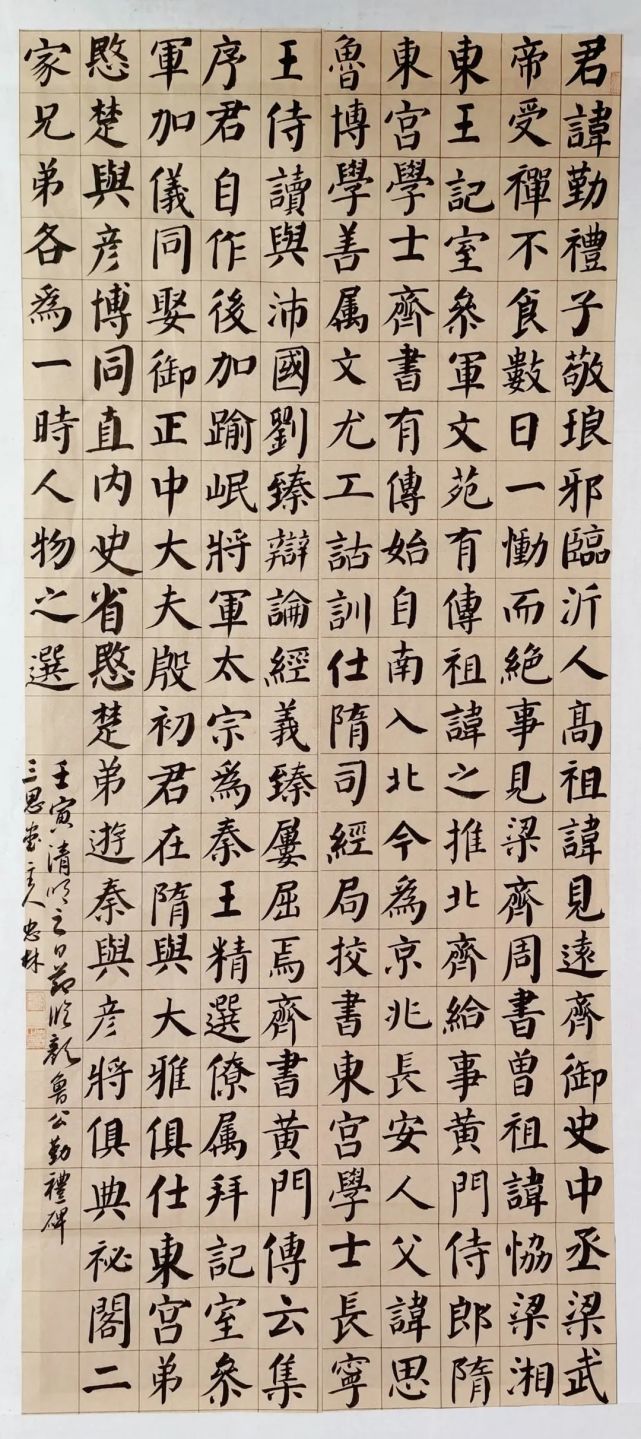 君諱勤禮子敬琅邪臨沂人髙祖諱見遠齊御史中丞梁武
帝受禪不食數日一慟而絕事見梁齊周書曾祖諱恊梁湘
東王記室叅軍文苑有傳祖諱之推北齊給事黃門侍郎隋
東宮學士齊書有傳始自南入北今爲京兆長安人父諱思
魯博學善属文尤工詁訓仕隋司經局挍書東宮學士長寧
王侍讀與沛國劉臻辯論經義臻屢屈焉齊書黃門傳云集
序君自作後加踰岷將軍太宗爲秦王精選僚属拜記室叅
軍加儀同娶御正中大夫殷初君在隋與大雅俱仕東宮弟
愍楚與彦博同直内史省愍楚弟遊秦與彦將俱典祕閣二
家兄弟各爲一時人物之選
壬寅清明之日節臨顏魯公勤禮碑
三思堂主人忠林